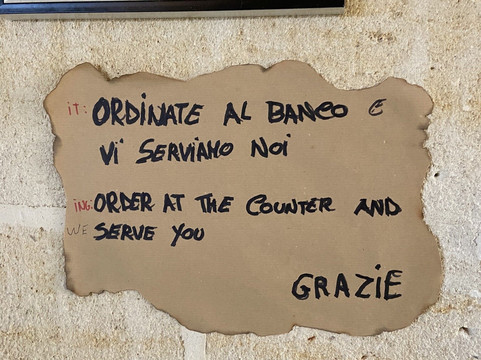 iT: ORDINATE AL BANCO E
Vi SERVIAMO NOI
iNG: ORDER AT THE COUNTER AND
WE SERVE YOU
GRAZIE